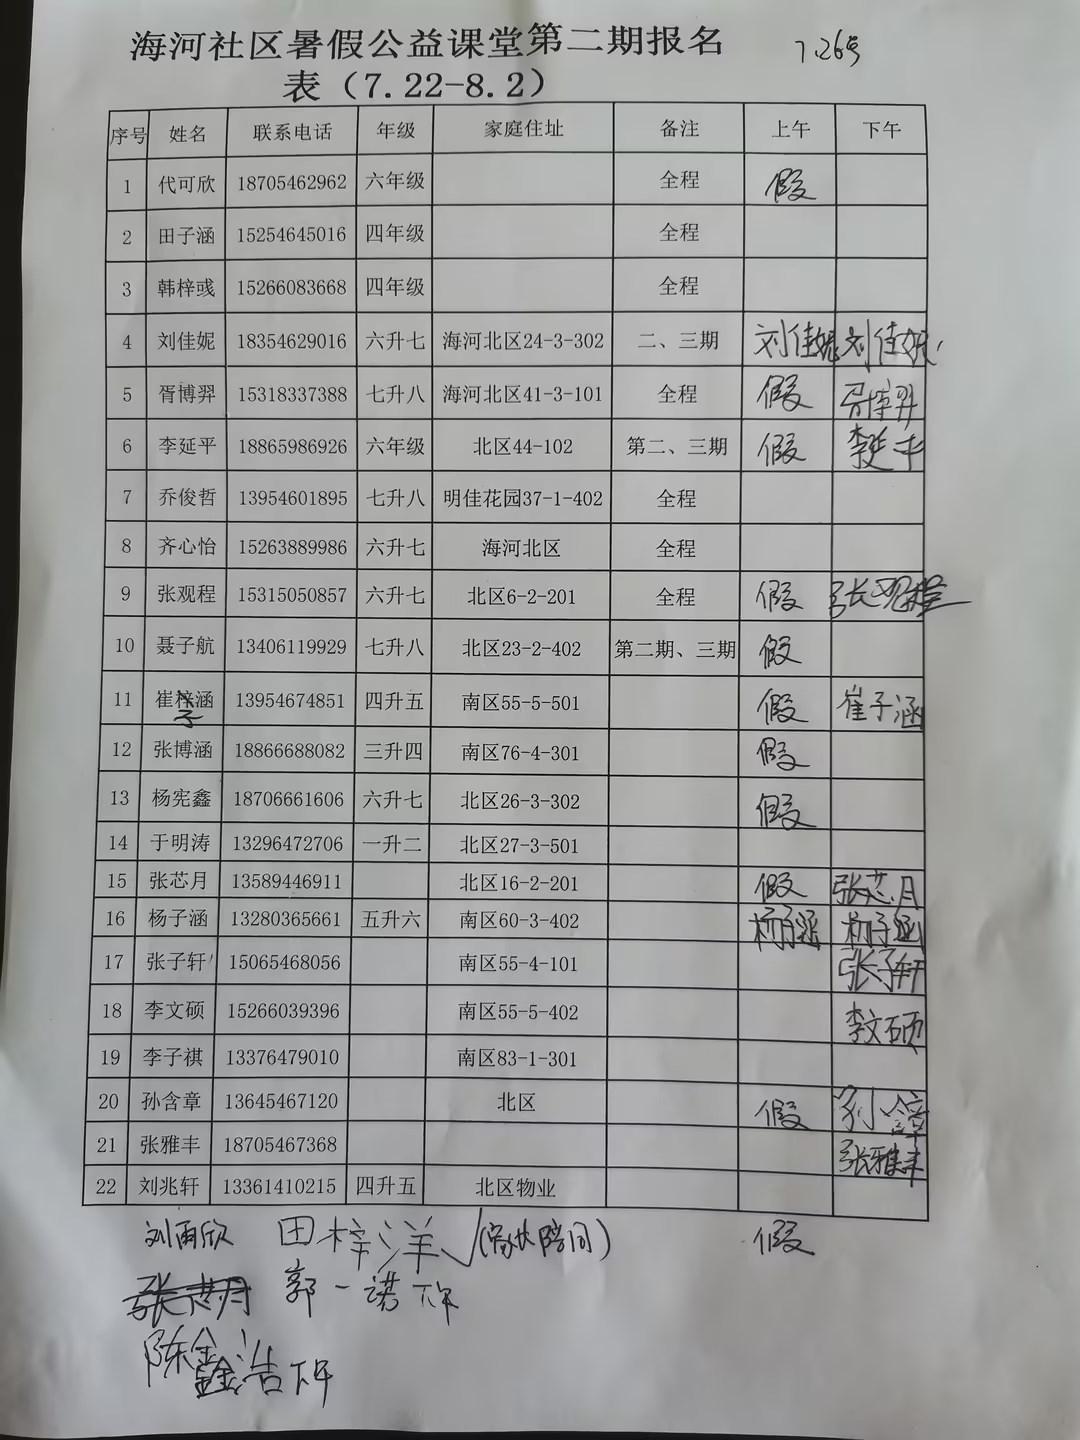 海河社区暑假公益课堂第二期报名 7.26号
表（7.22-8.2）
序号 姓名 联系电话 年级 家庭住址 备注 上午 下午
1 代可欣 18705462962 六年级 全程 假
2 田子涵 15254645016 四年级 全程
3 韩梓彧 15266083668 四年级 全程
4 刘佳妮 18354629016 六升七 海河北区24-3-302 二、三期 刘佳妮 刘佳妮
5 胥博羿 15318337388 七升八 海河北区41-3-101 全程 假 胥博羿
6 李延平 18865986926 六年级 北区44-102 第二、三期 假 李延平
7 乔俊哲 13954601895 七升八 明佳花园37-1-402 全程
8 齐心怡 15263889986 六升七 海河北区 全程
9 张观程 15315050857 六升七 北区6-2-201 全程 假 张观程
10 聂子航 13406119929 七升八 北区23-2-402 第二期、三期 假
11 崔梓涵 子 13954674851 四升五 南区55-5-501 假 崔子涵
12 张博涵 18866688082 三升四 南区76-4-301 假
13 杨宪鑫 18706661606 六升七 北区26-3-302 假
14 于明涛 13296472706 一升二 北区27-3-501
15 张芯月 13589446911 北区16-2-201 假 张芯月
16 杨子涵 13280365661 五升六 南区60-3-402 杨子涵 杨子涵
17 张子轩 15065468056 南区55-4-101 张子轩
18 李文硕 15266039396 南区55-5-402 李文硕
19 李子祺 13376479010 南区83-1-301
20 孙含章 13645467120 北区 假 孙含章
21 张雅丰 18705467368 张雅丰
22 刘兆轩 13361410215 四升五 北区物业
刘雨欣 田梓洋√(家长陪同) 假
郭一诺 下午
陈金鑫浩 下午